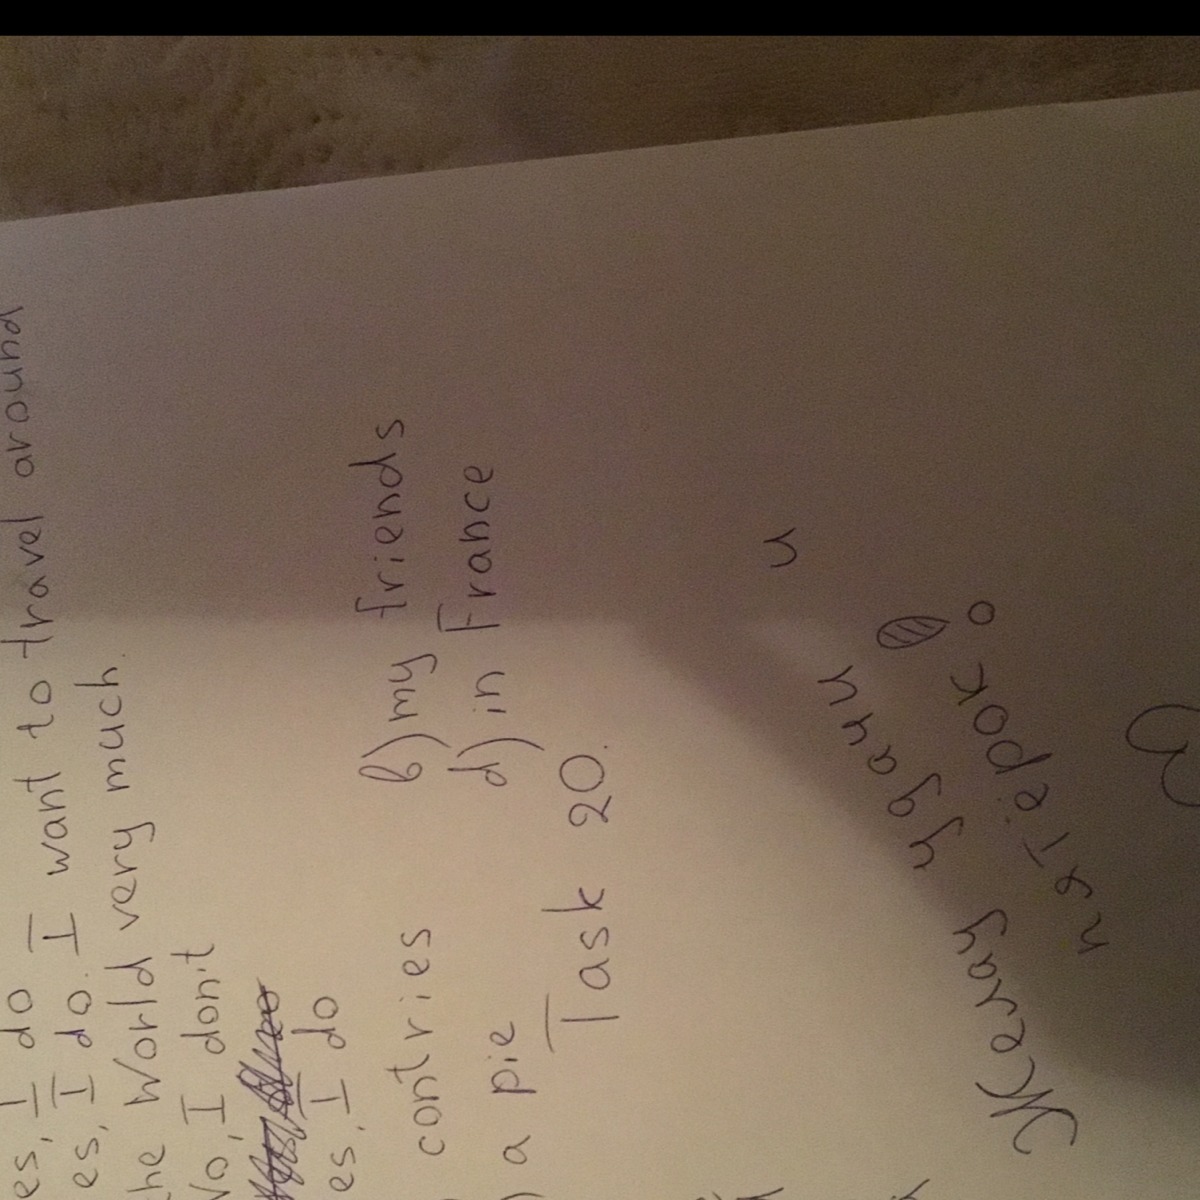 es, I do
es, I do. I want to travel around
the World very much.
No, I don't
es, I do
contries b) my friends
) a pie d) in France
Task 20.
Желаю удачи и
пятёрок